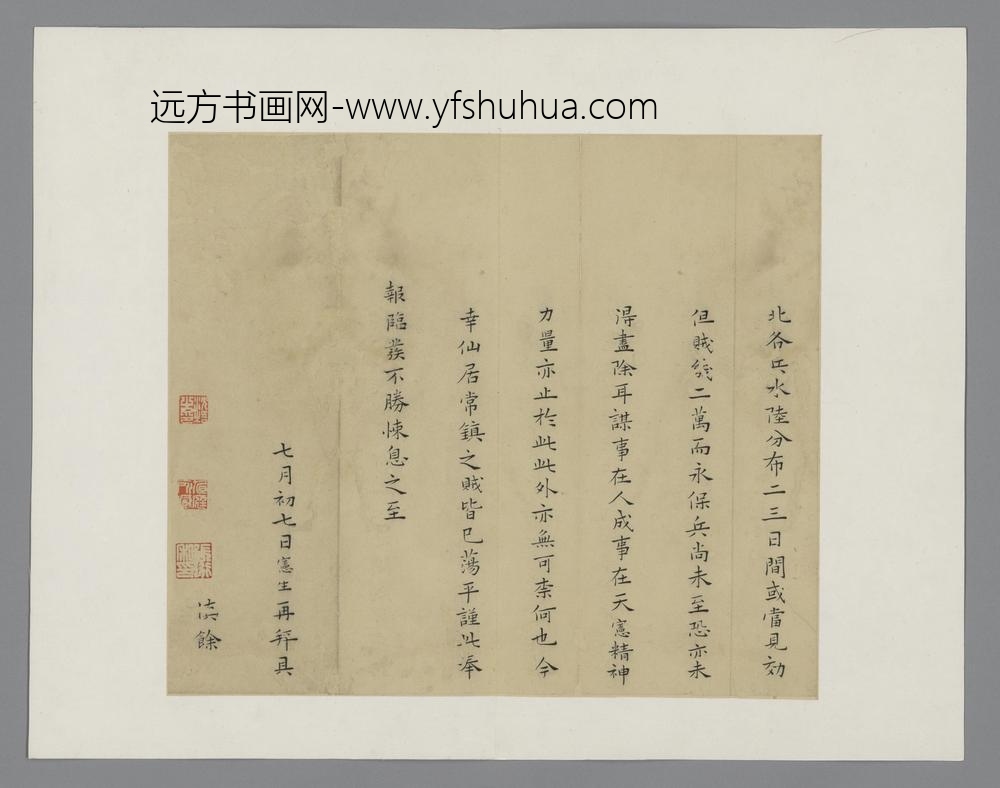 远方书画网-www.yfshuhua.com
北各兵水陸分布二三日間或當見効
但賊纔二萬而永保兵尚未至恐亦未
得盡除耳謀事在人成事在天憲精神
力量亦止於此此外亦無可柰何也今
幸仙居常鎮之賊皆已蕩平謹此奉
報臨發不勝悚息之至
七月初七日憲生再拜具
餘